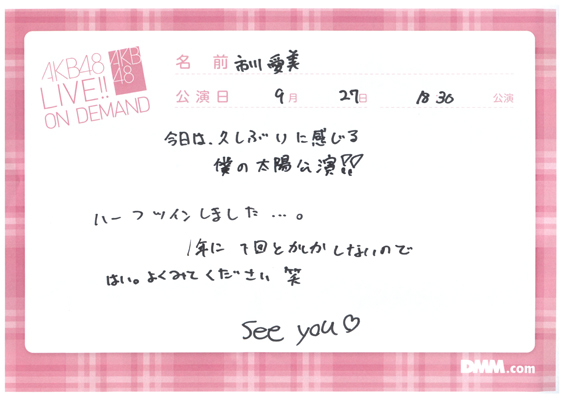 AKB48
LIVE!!
ON DEMAND
AKB
48
名前 市川愛美
公演日 9月 27日 18:30 公演
今日は、久しぶりに感じる
僕の太陽公演!!
ハーフツインしました…。
1年に1回とかしかしないので
はい。よくみてください 笑
See you♡
DMM.com